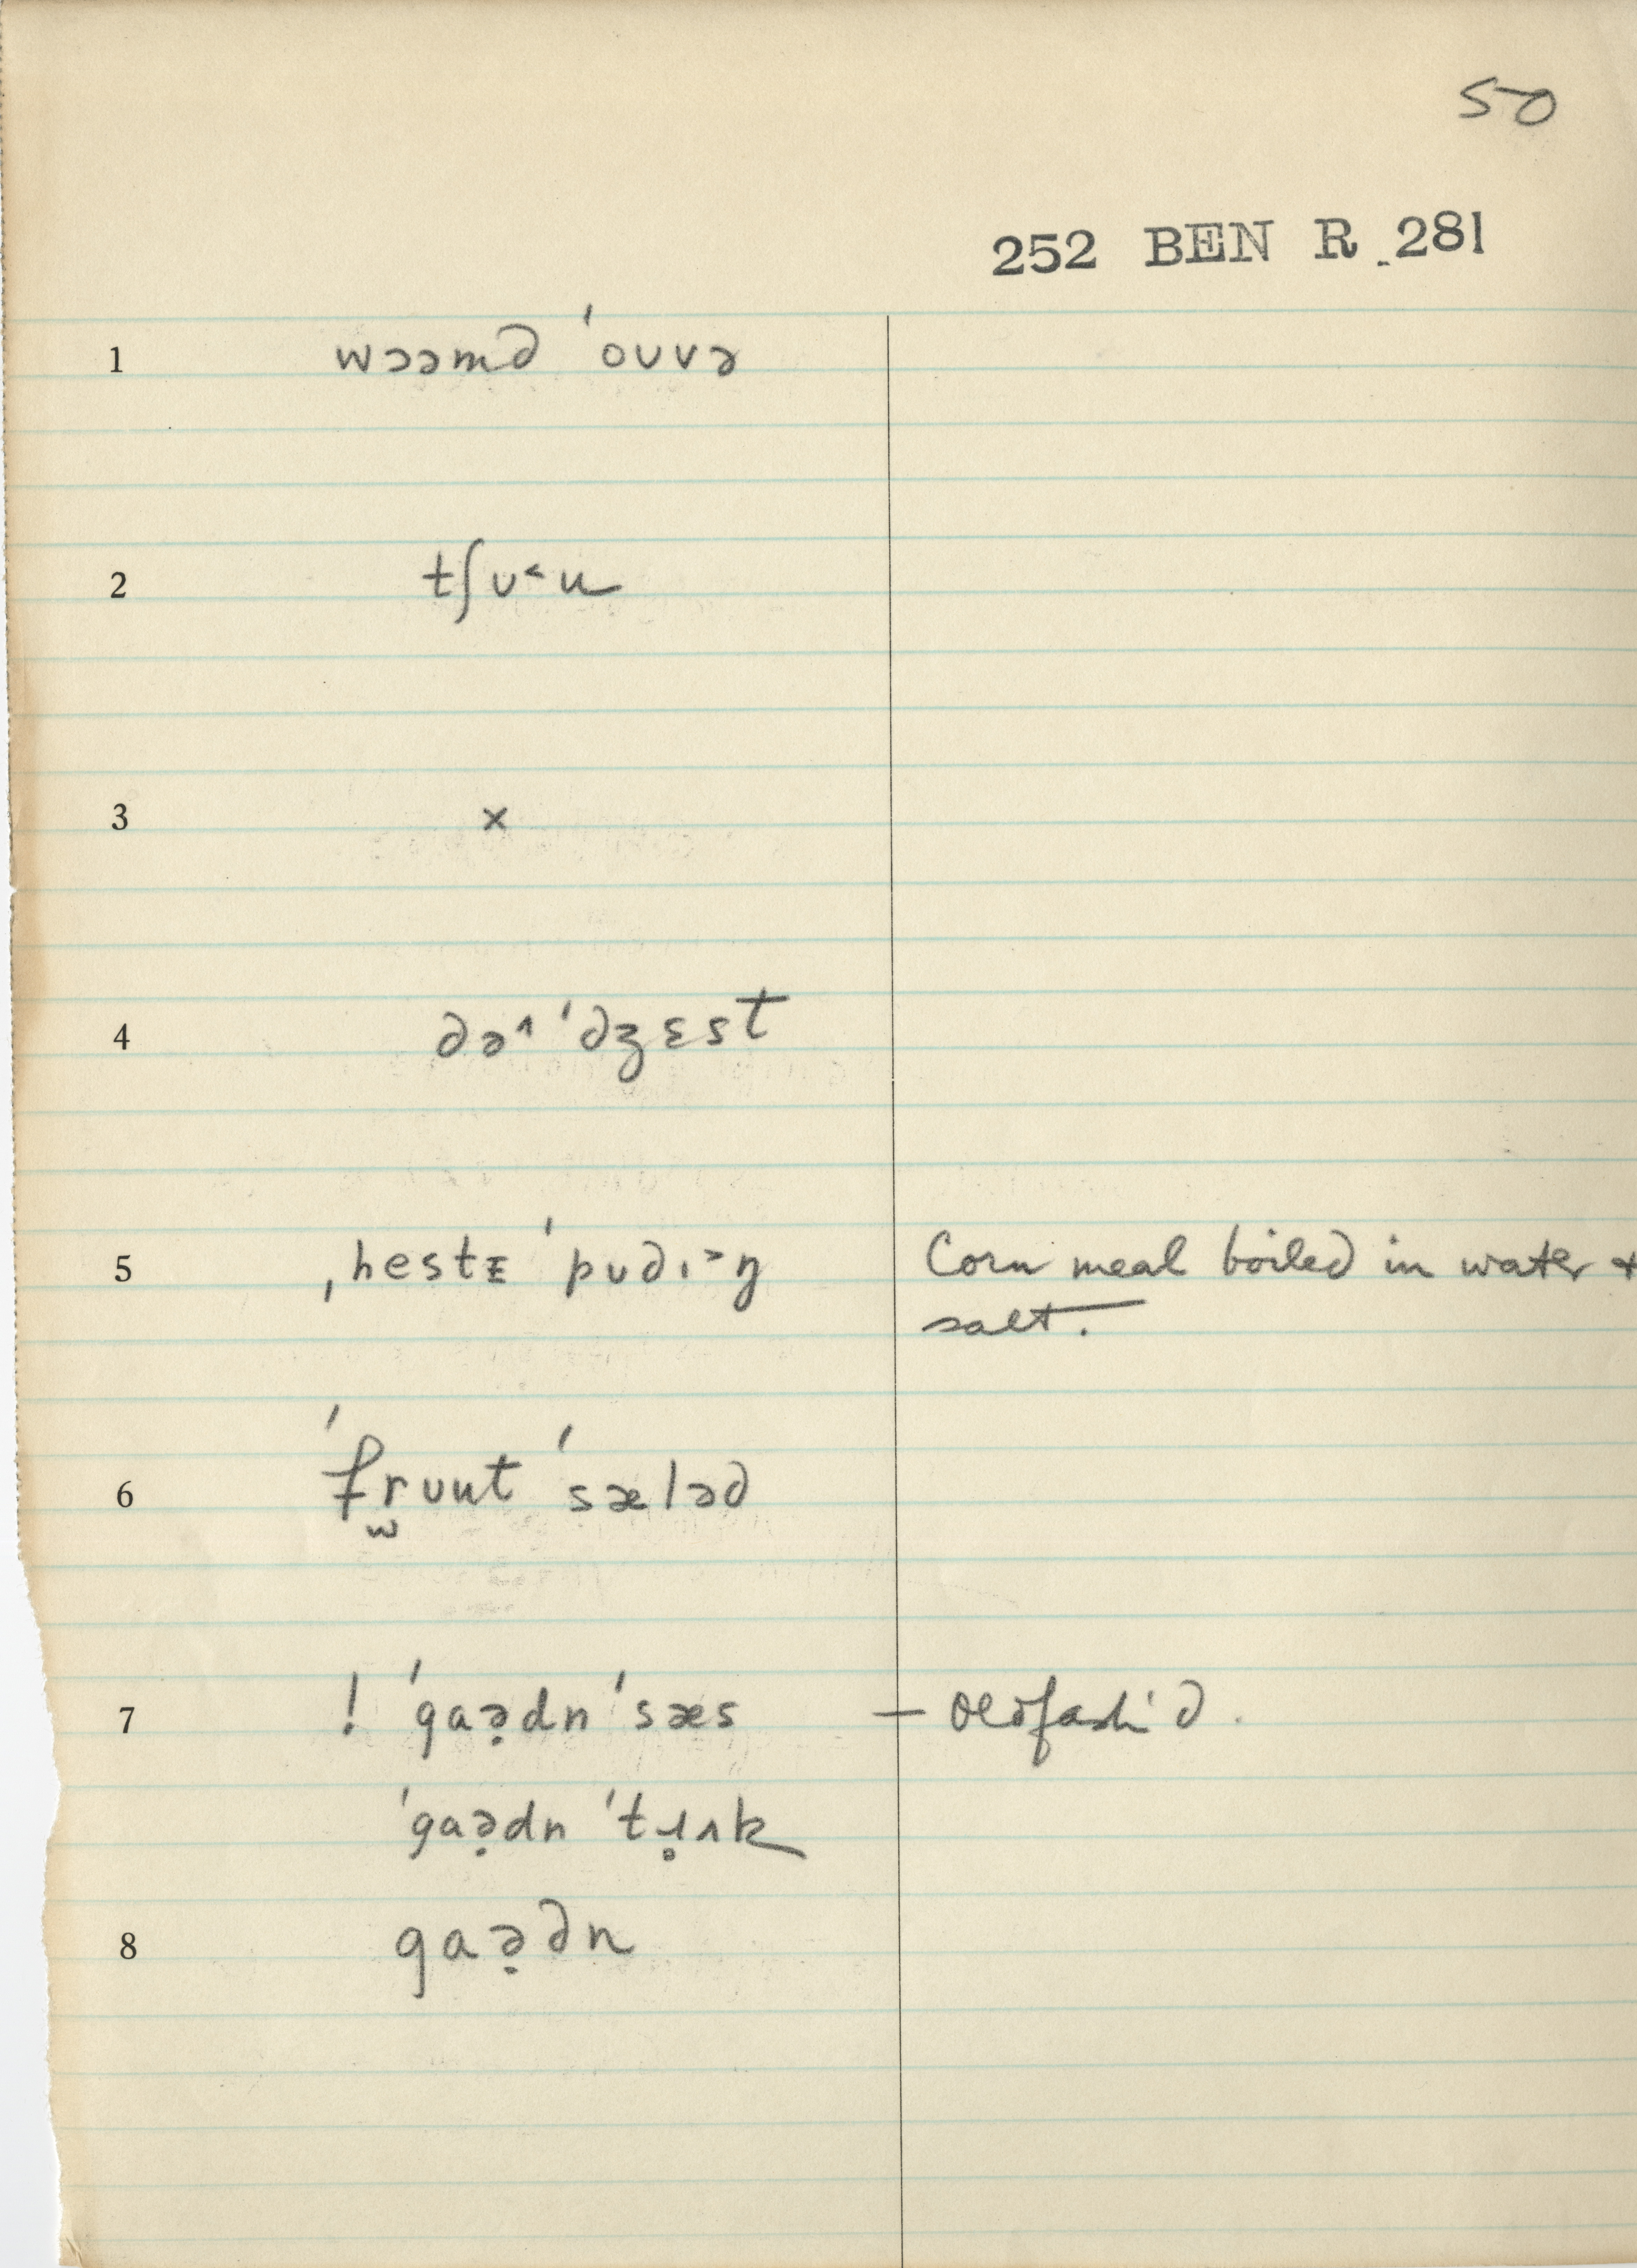 50
252 BEN R 281
1 wɔəmd ˈoʊvə
2 tʃʊ˂u
3 ×
4 də˄ ˈdʒɛst
5 ˌhestᵻ ˈpʊdɪ˃ŋ Corn meal boiled in water +
salt.
6 ˈfr̫ʊut ˈsæləd
7 ! ˈgaə̣dn ˈsæs — Oldfash'd.
ˈgaə̣dn ˈtɹ̥ʌk
8 gaə̣dn